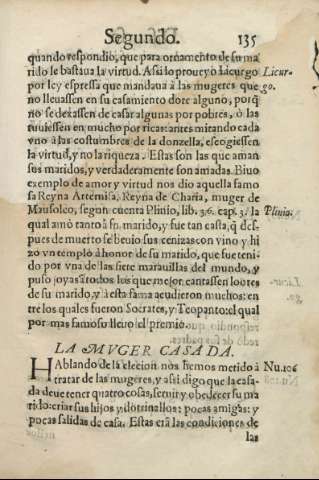 Segundo. 135
quando respondiò, que para ornamento de su ma
rido le bastaua la virtud. Assi lo proueyo Licurgo Licur-
por ley espressa que mandaua à las mugeres que go.
no lleuassen en su casamiento dote alguno, porq̃
no se dexassen de casar algunas por pobres, ò las
tuuiessen en mucho por ricas: antes mirando cada
vno à las costumbres de la donzella, escogiessen
la virtud, y no la riqueza. Estas son las que aman
sus maridos, y verdaderamente son amadas. Biuo
exemplo de amor y virtud nos dio aquella famo
sa Reyna Artemisa, Reyna de Charia, muger de
Mausoleo, segun cuenta Plinio, lib. 36. cap. 3. la Plinio.
qual amò tanto à su marido, y fue tan casta, q̃ des-
pues de muerto se beuio sus cenizas con vino y hi
zo vn templo à honor de su marido, que fue teni-
do por vna de las siete marauillas del mundo, y
puso joyas à todos los que mejor cantassen loores
de su marido, y à esta fama acudieron muchos: en
tre los quales fueron Socrates, y Teopanto: el qual
por mas famoso lleuò el premio.
LA MVGER CASADA.
HAblando de la elecion nos hemos metido à Nu.106
tratar de las mugeres, y assi digo que la casa-
da deue tener quatro cosas, seruir y obedecer su ma
rido: criar sus hijos y dotrinallos: pocas amigas: y
pocas salidas de casa. Estas erã las condiciones de
las